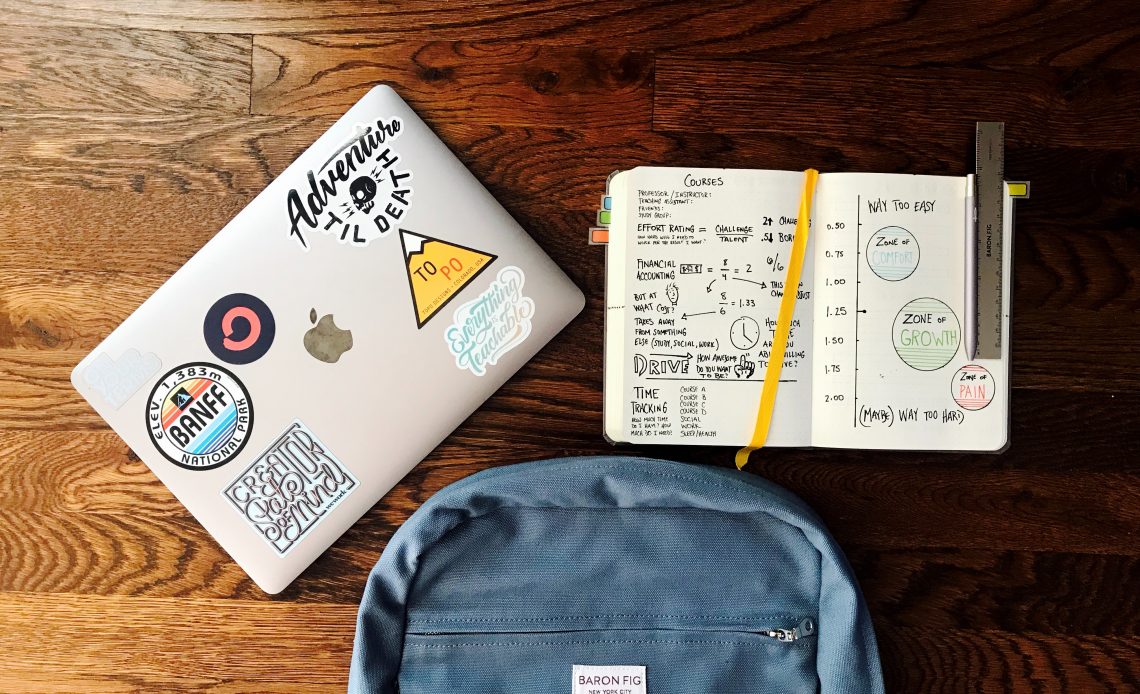 Adventure
TIL DEATH
TO PO
TOPO DESIGNS, COLORADO, USA
Everything
is
Teachable
ELEV. 1,383m
BANFF
NATIONAL PARK
CREATOR
State
OF Mind
wework
COURSES
PROFESSOR / INSTRUCTOR:
TEACHING ASSISTANT:
FRIENDS:
STUDY GROUP:
EFFORT RATING = CHALLENGE
TALENT
HOW HARD WILL I NEED TO
WORK FOR THE RESULT I WANT?
FINANCIAL
ACCOUNTING
= 8
4
= 2
6/6
BUT AT
WHAT COST?
8
6
= 1.33
TAKES AWAY
FROM SOMETHING
ELSE (STUDY, SOCIAL, WORK)
DRIVE
HOW AWESOME
DO YOU WANT
TO BE?
TIME
TRACKING
HOW MUCH TIME
DO I HAVE? HOW
MUCH DO I NEED?
COURSE A
COURSE B
COURSE C
COURSE D
SOCIAL
WORK
SLEEP/HEALTH
WAY TOO EASY
0.50
0.75
1.00
1.25
1.50
1.75
2.00
ZONE OF
COMFORT
ZONE OF
GROWTH
ZONE OF
PAIN
(MAYBE) WAY TOO HARD
BARON FIG
BARON FIG
NEW YORK CITY